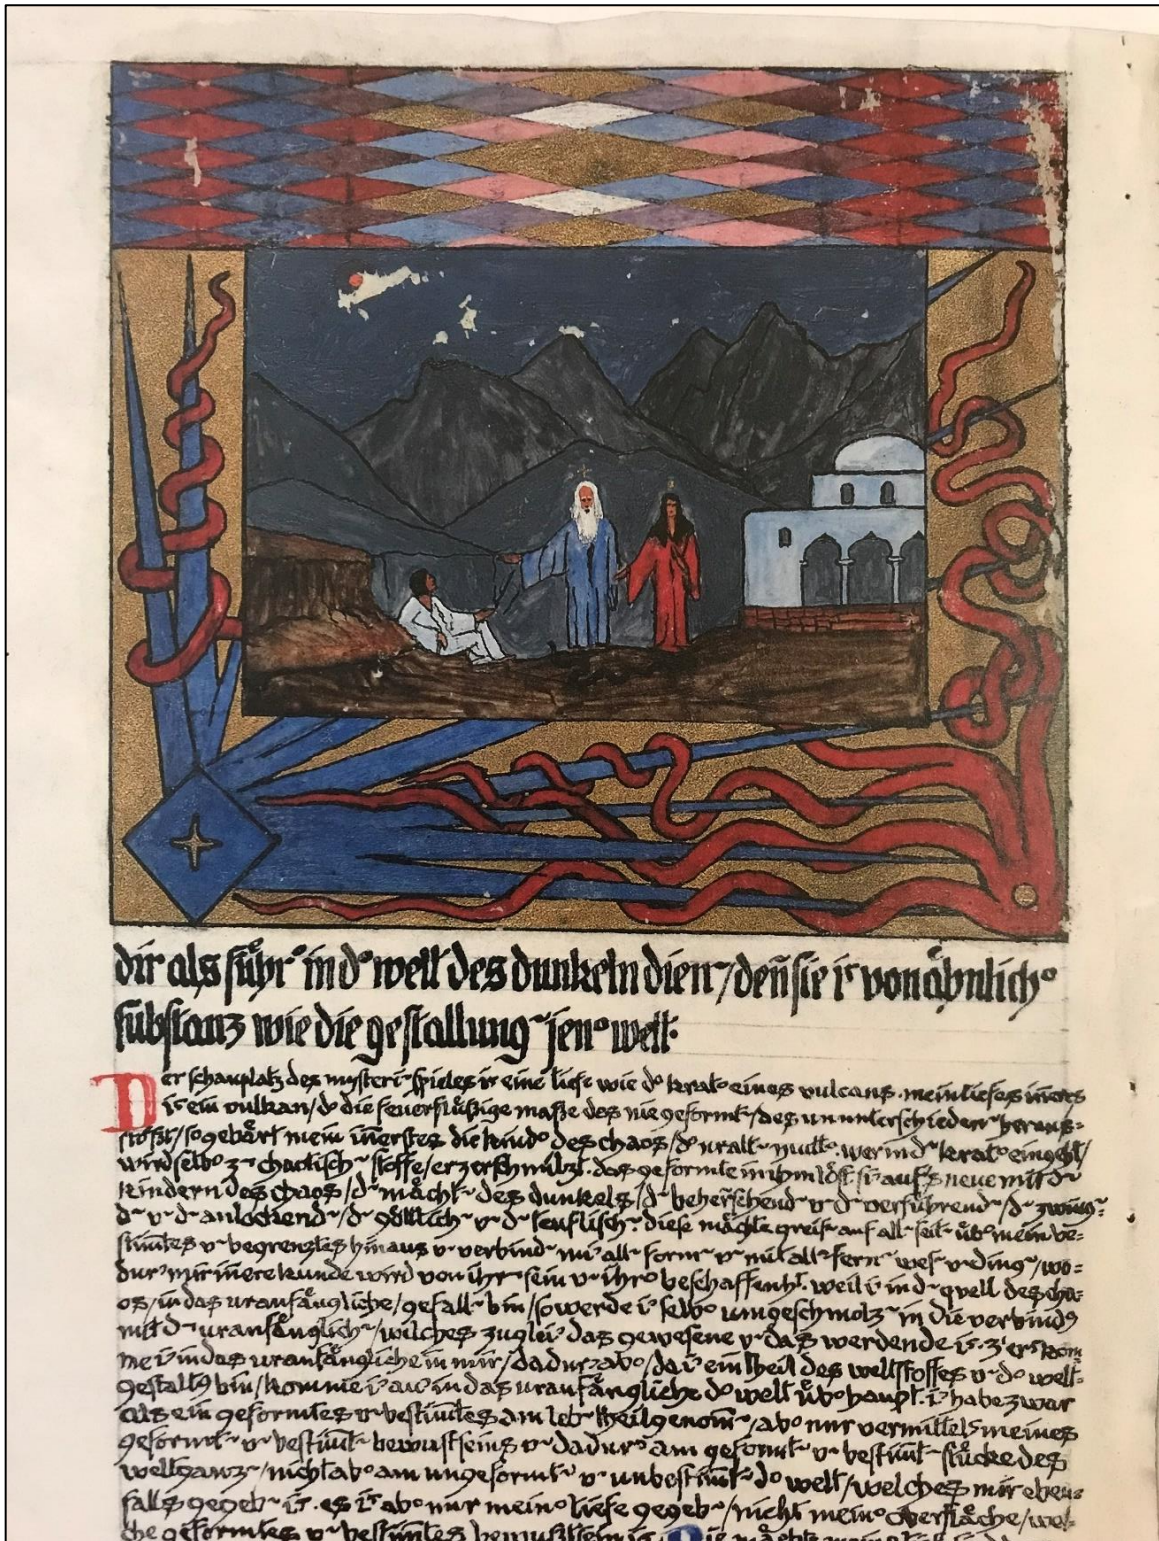 dir als führ° in d° welt des dunkeln dien~/ den̄ sie i⸗ von ähnlich°
substanz wie die gestaltung~ jen° welt.
Der schauplatz des mysteri~spieles i⸗ eine tiefe wie d° krat° eines vulcans. mein tiefes in̄eres
i⸗ ein vulkan/ d° die feuerflüßige maße des nie geformt~/ des ununterschieden~ heraus⸗
stößt/ so gebärt mein in̄erstes die kind° des chaos/ d° uralt~ mutt°. wer in d~ krat° eingeht/
wird selb° z~ chaotisch~ stoffe/ er zerschmilzt. das geformte in ihm löst si' aufs neue mit d~
kindern des chaos/ d~ mächt~ des dunkels/ d~ beherschend~ v~ d~ verführend~/ d~ zwing~⸗
d~ v~ d~ anlockend~/ d~ göttlich~ v~ d~ teuflisch~. diese mächte greif~ auf all~ seit~ üb° mein be⸗
stim̄tes v~ begrenztes hinaus v~ verbind~ mi' all~ form~ v~ mit all~ fern~ wes~ v~ ding~/ wo⸗
dur' mir in̄ere kunde wird von ihr~ sein v~ ihr° beschaffenht. weil i' in d~ quell des cha⸗
os/ in das uranfängliche/ gefall~ bin/ so werde i' selb° umgeschmolz~ in die verbindg
mit d~ uranfänglich~/ wilches zuglei' das gewesene v~ das werdende i⸗. z' erst kom̄
me i' in das uranfängliche in mir/ dadur' ab°/ da i' ein theil des weltstoffes v~ d° welt⸗
gestaltg bin/ komme i' au' in das uranfängliche d° welt üb°haupt. i' habe zwar
als ein geformtes v~ bestim̄tes am leb~ theilgenom̄~/ ab° nur vermittelst meines
geformt~ v~ bestim̄t~ bewustseins v~ dadur' am geformt~ v~ bestim̄t~ stücke des
weltganz~/ nicht ab° am ungeformt~ v~ unbestim̄t~ d° welt/ welches mir eben⸗
falls gegeb~ i⸗. es i⸗ ab° nur mein° tiefe gegeb~/ nicht mein° oberfläche/ wel⸗
che geformtes v~ bestim̄tes bewustsein i⸗. Die mächte mein°